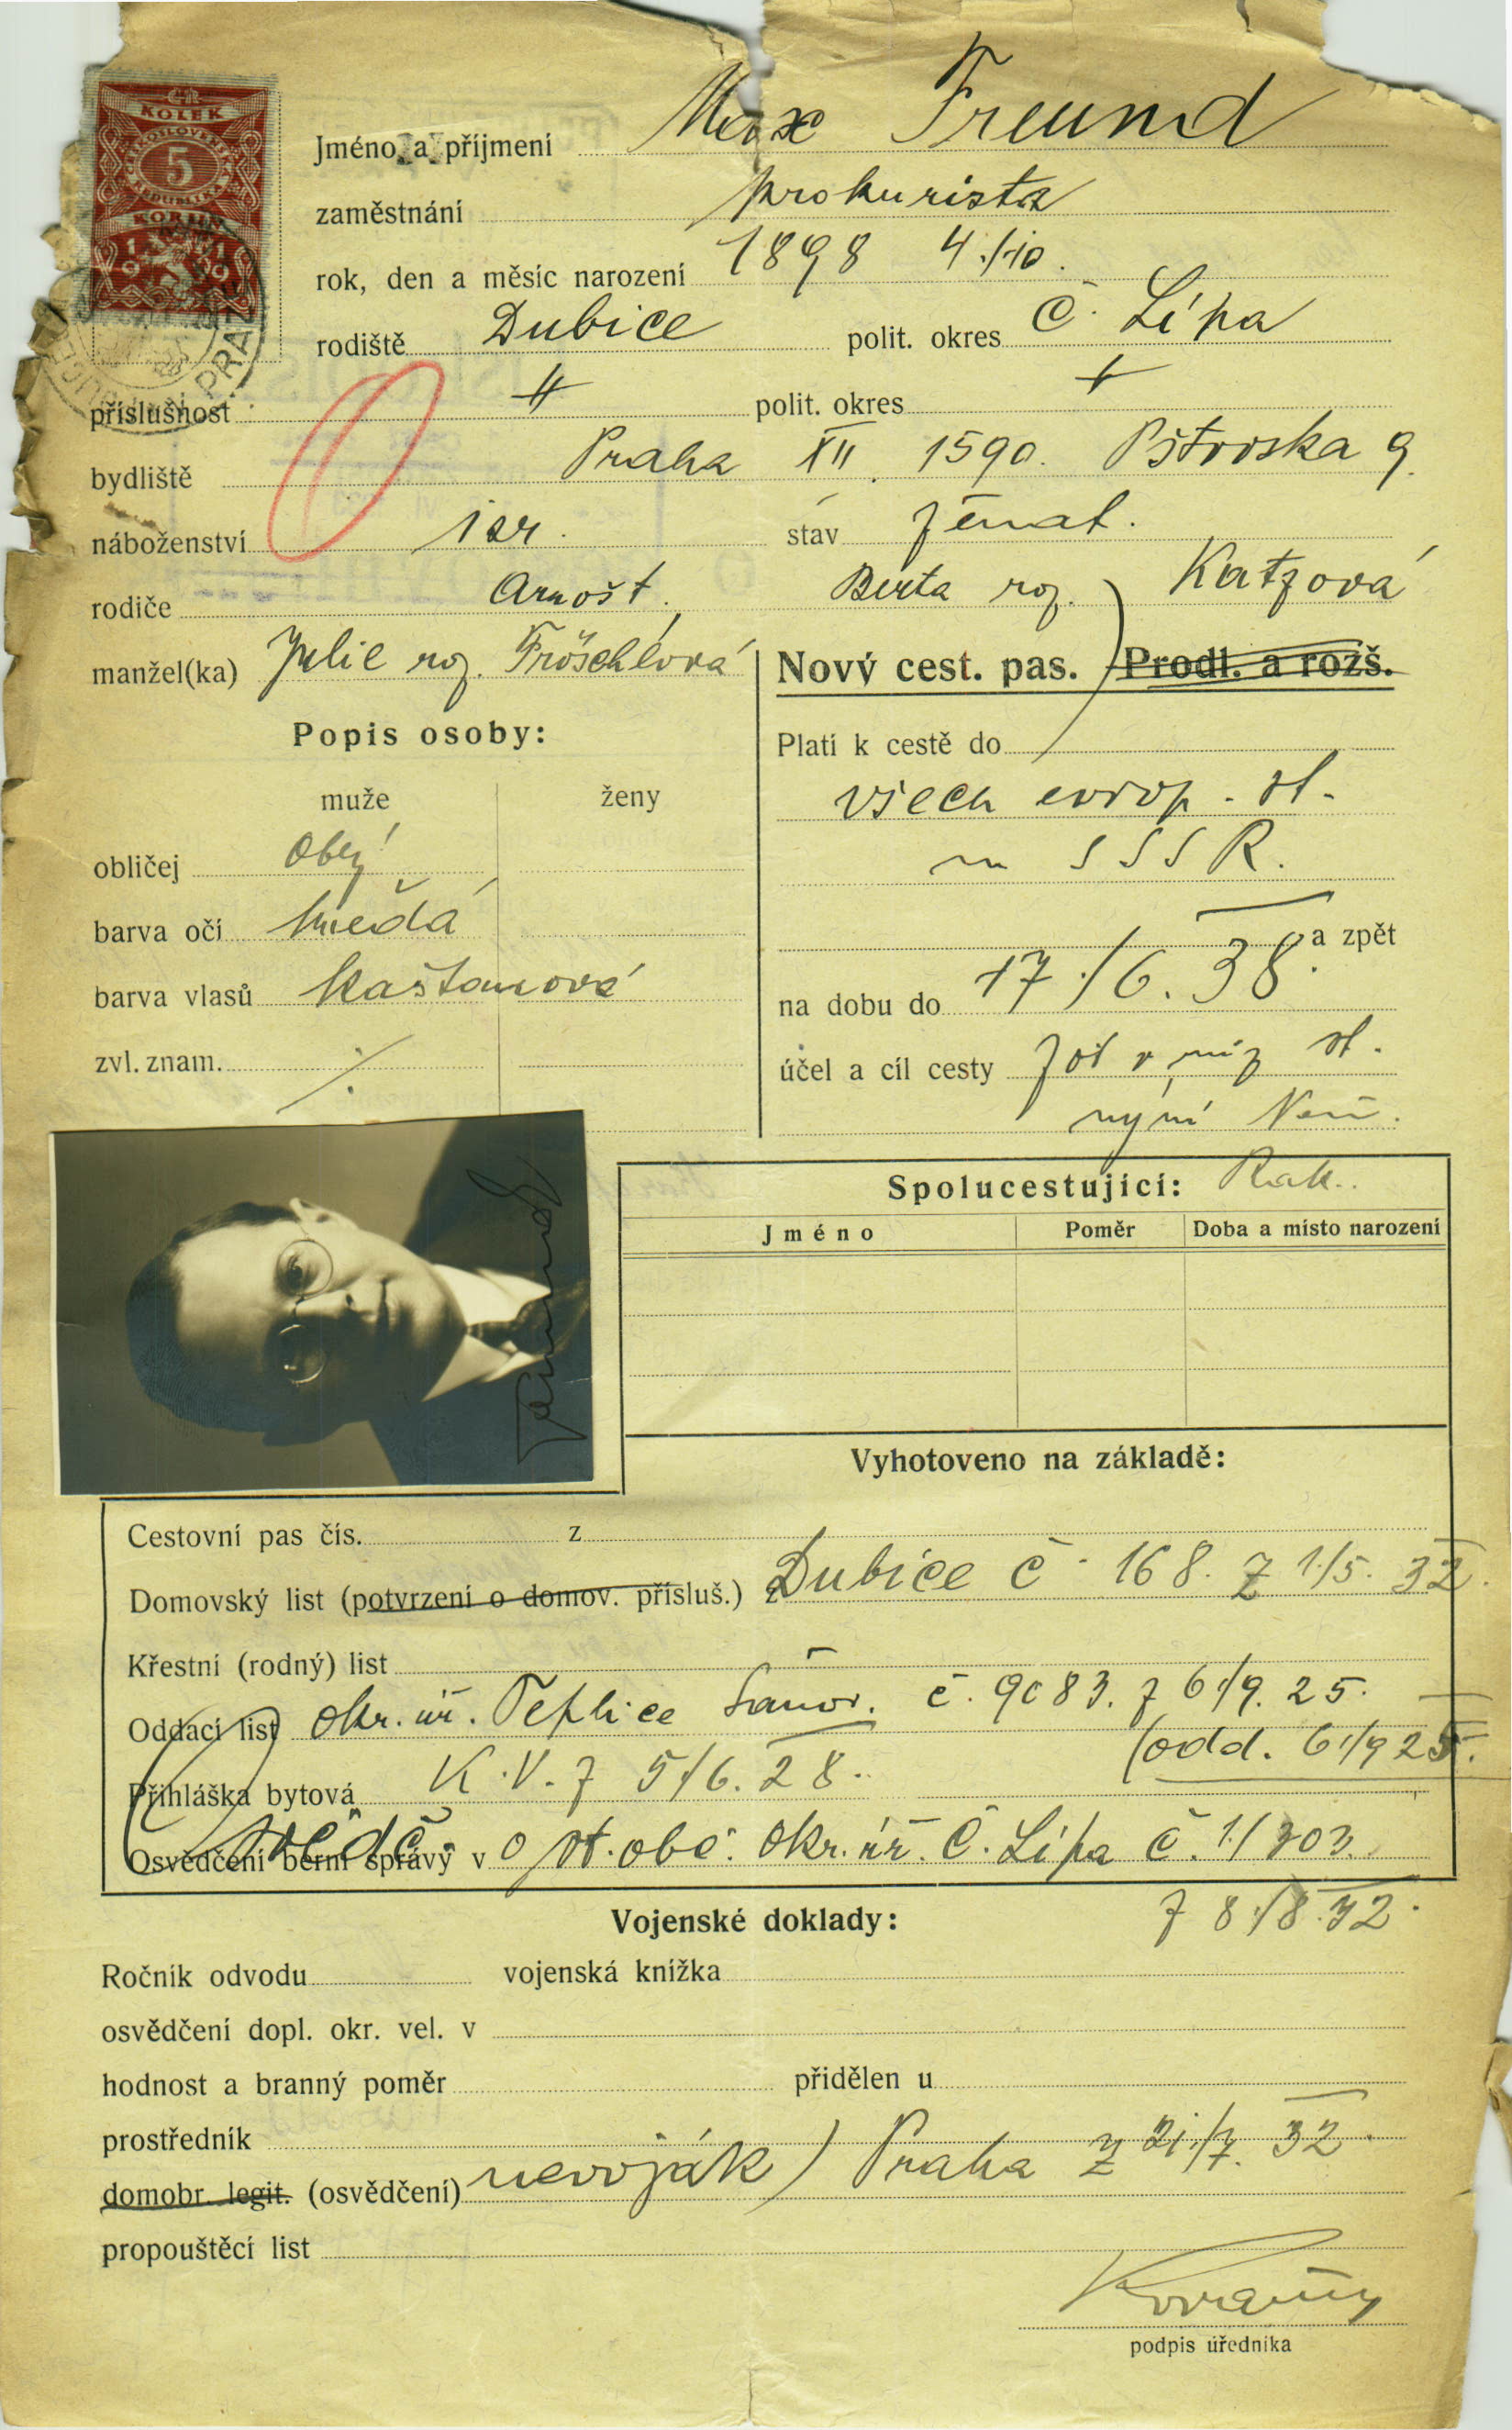 KOLEK
5
KORUN
PRAZE
Jméno a příjmení Max Freund
zaměstnání prokurista
rok, den a měsíc narození 1898 4./10.
rodiště Dubice polit. okres Č. Lípa
příslušnost polit. okres
bydliště Praha XII. 1590. Pštroska 9.
náboženství isr. stav ženat.
rodiče Arnošt, Berta roz. Katzová
manžel(ka) Julie roz. Fröschlová
Nový cest. pas. Prodl. a rozš.
Popis osoby:
muže ženy
obličej oblý
barva očí hnědá
barva vlasů kaštanová
zvl. znam. ./.
Platí k cestě do
všech evrop. st.
m SSSR.
a zpět
na dobu do 17./6. 38.
účel a cíl cesty st.
nyní Něm.
Rak.
Freund
Spolucestující:
Jméno Poměr Doba a místo narození
Vyhotoveno na základě:
Cestovní pas čís. z
Domovský list (potvrzení o domov. přísluš.) z Dubice č. 168. z 1./5. 32.
Křestní (rodný) list
Oddací list okr. úř. Teplice Šanov. č. 9083. z 6./9. 25.
(odd. 6./9 25.
Přihláška bytová K.V. z 5/6. 28.
Osvědčení berní správy v svědč. o st. obč. okr. úř. Č. Lípa č. 1./703.
z 8./8. 32.
Vojenské doklady:
Ročník odvodu vojenská knížka
osvědčení dopl. okr. vel. v
hodnost a branný poměr přidělen u
prostředník
domobr. legit. (osvědčení) nevoják) Praha z 21./7. 32.
propouštěcí list
podpis úředníka